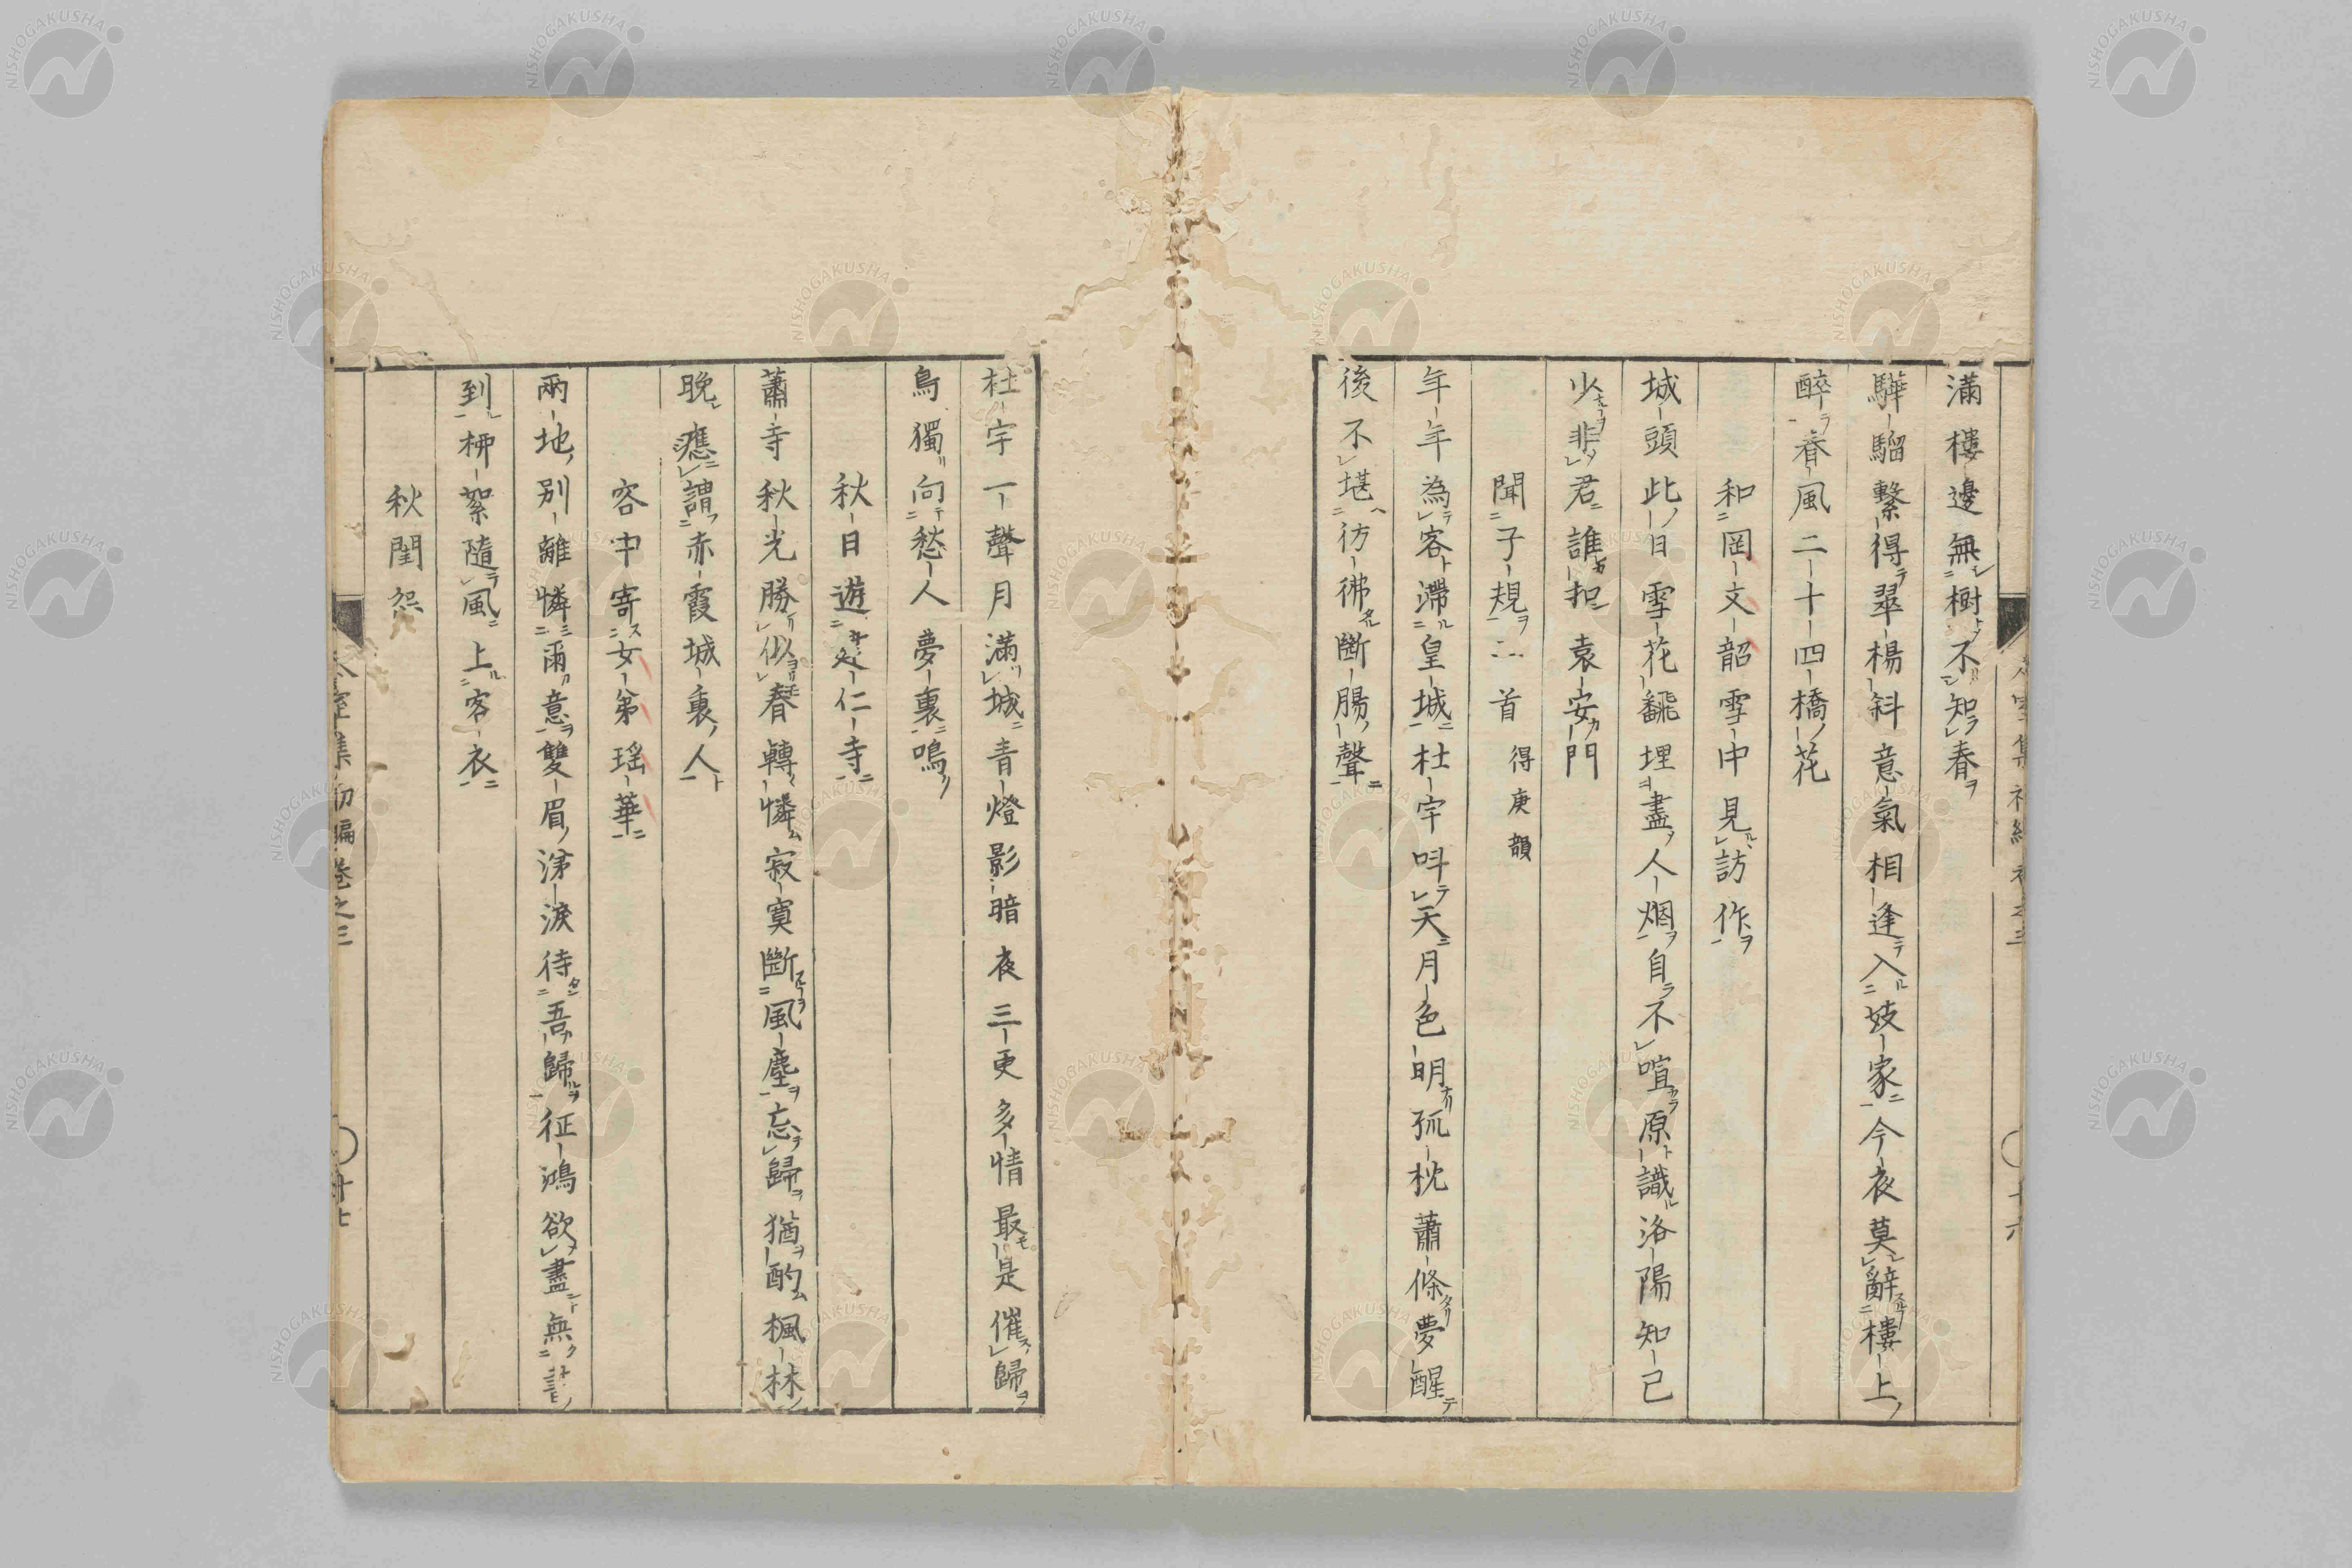 滿樓邊無樹不知春
驊騮繫得翠楊斜意氣相逢入妓家今夜莫辭樓上
醉春風二十四橋花
和岡文韶雪中見訪作
城頭此日雪花飜埋盡人烟自不喧原識洛陽知己
少非君誰扣袁安門
聞子規二首 得庚韻
年年為客滯皇城杜宇呌天月色明孤枕蕭條夢醒
後不堪彷彿斷腸聲
杜宇一聲月滿城青燈影暗夜三更多情最是催歸
鳥獨向愁人夢裏鳴
秋日遊仁寺
蕭寺秋光勝似春轉憐寂寞斷風塵忘歸猶酌楓林
晚應謂赤霞城裏人
客中寄女弟瑶華
兩地別離憐爾意雙眉涕淚待吾歸征鴻欲盡無
到柳絮隨風上客衣
秋閨怨
室集初編卷之三 十七
NISHOGAKUSHA